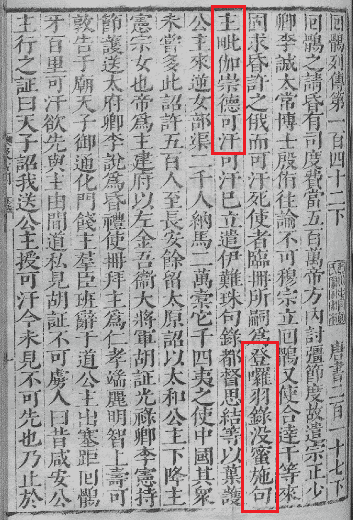 回鶻列傳第一百四十二下 唐書二百一十七下
回鶻之請昏有司度費當五百萬帝方內討彊節度故遣宗正少
卿李誠太常博士殷侑往諭不可穆宗立回鶻又使合達干等來
固求昏許之俄而可汗死使者臨冊所嗣為登囉羽錄沒蜜施句
主毗伽崇德可汗可汗已立遣伊難珠句錄都督思結等以葉護
公主來逆女部渠二千人納馬二萬橐它千四夷之使中國其衆
未嘗多此詔許五百人至長安餘留太原詔以太和公主下降主
憲宗女也帝為主建府以左金吾衞大將軍胡証光祿卿李憲持
節護送太府卿李說為昏禮使冊拜主為仁孝端麗明智上壽可
敦告于廟天子御通化門餞主羣臣班辭于道公主出塞距回鶻
牙百里可汗欲先與主由間道私見胡証不可虜人曰昔咸安公
主行之証曰天子詔我送公主授可汗今未見不可先也乃止於